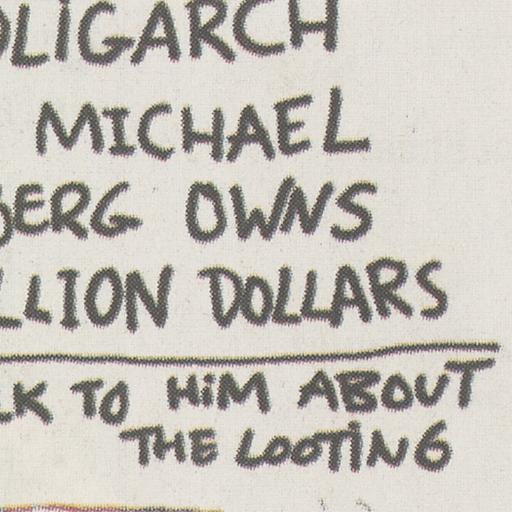 OLIGARCH
MICHAEL
BERG OWNS
LLION DOLLARS
LK TO HIM ABOUT
THE LOOTING